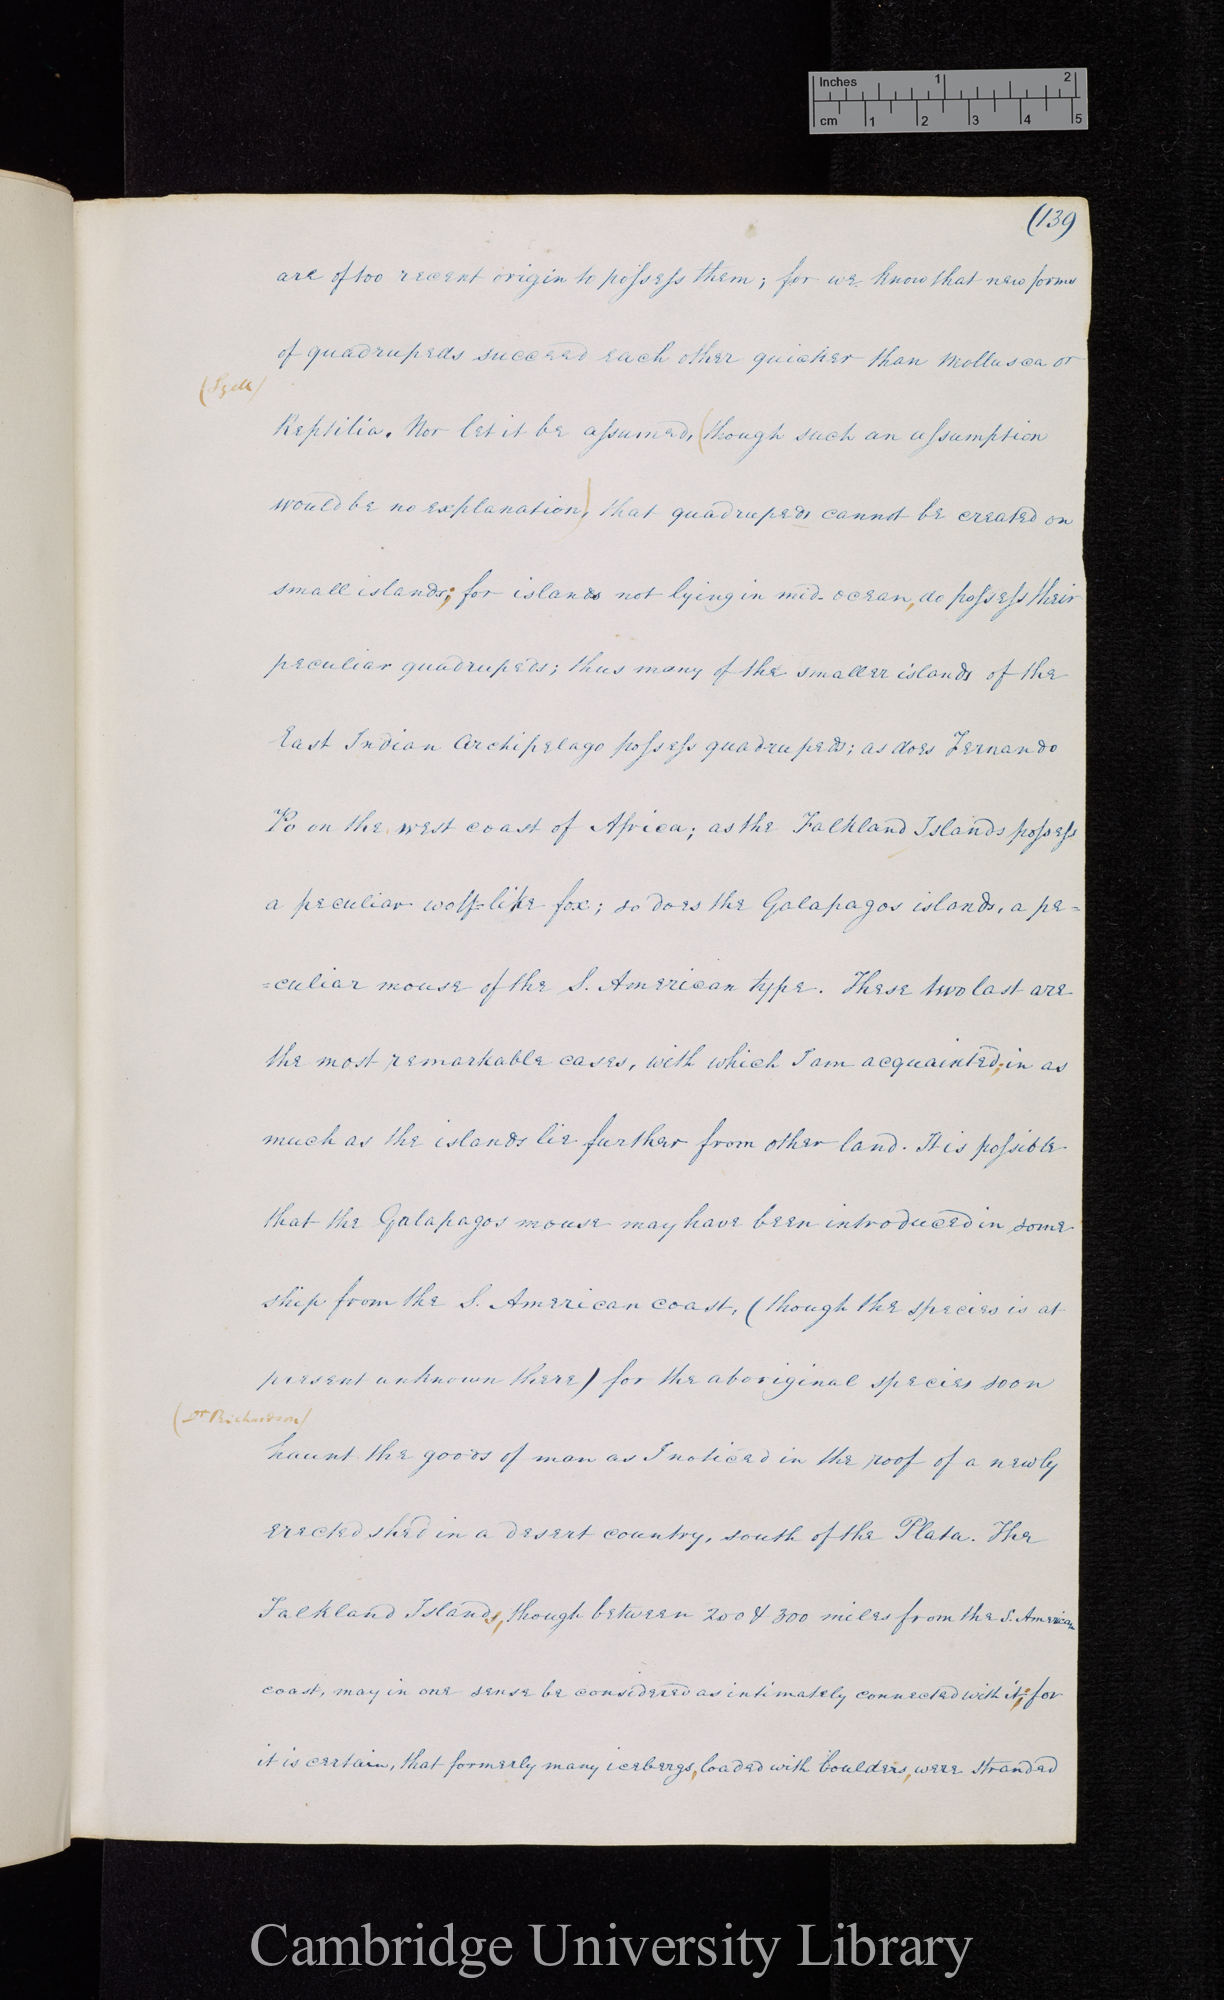 Inches 1 2
cm 1 2 3 4 5
(139)
are of too recent origin to possess them; for we know that new forms
of quadrupeds succeed each other quicker than Mollusca or
(Lyell)
Reptilia. Nor let it be assumed, (though such an assumption
would be no explanation), that quadrupeds cannot be created on
small islands; for islands not lying in mid-ocean, do possess their
peculiar quadrupeds; thus many of the smaller islands of the
East Indian Archipelago possess quadrupeds; as does Fernando
Po on the west coast of Africa; as the Falkland Islands possess
a peculiar wolf-like fox; so does the Galapagos islands, a pe=
=culiar mouse of the S. American type. These two last are
the most remarkable cases, with which I am acquainted; in as
much as the islands lie further from other land. It is possible
that the Galapagos mouse may have been introduced in some
ship from the S. American coast, (though the species is at
present unknown there) for the aboriginal species soon
(Dr Richardson)
haunt the goods of man as I noticed in the roof of a newly
erected shed in a desert country, south of the Plata. The
Falkland Islands, though between 200 & 300 miles from the S. American
coast, may in one sense be considered as intimately connected with it; for
it is certain, that formerly many icebergs, loaded with boulders, were stranded
Cambridge University Library